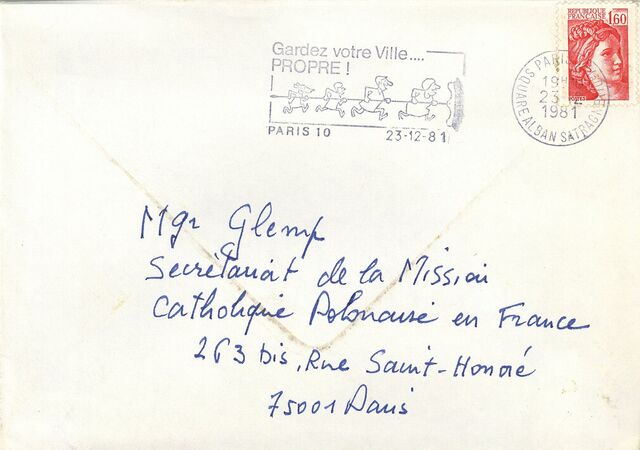 Gardez votre Ville....
PROPRE !
PARIS 10 23-12-81
REPUBLIQUE
FRANCAISE 1,60
POSTES
PARIS
23-12
1981
SQUARE ALBAN SATRAGNE
Mgr Glemp
Secrétariat de la Mission
Catholique Polonaise en France
263 bis, Rue Saint-Honoré
75001 Paris